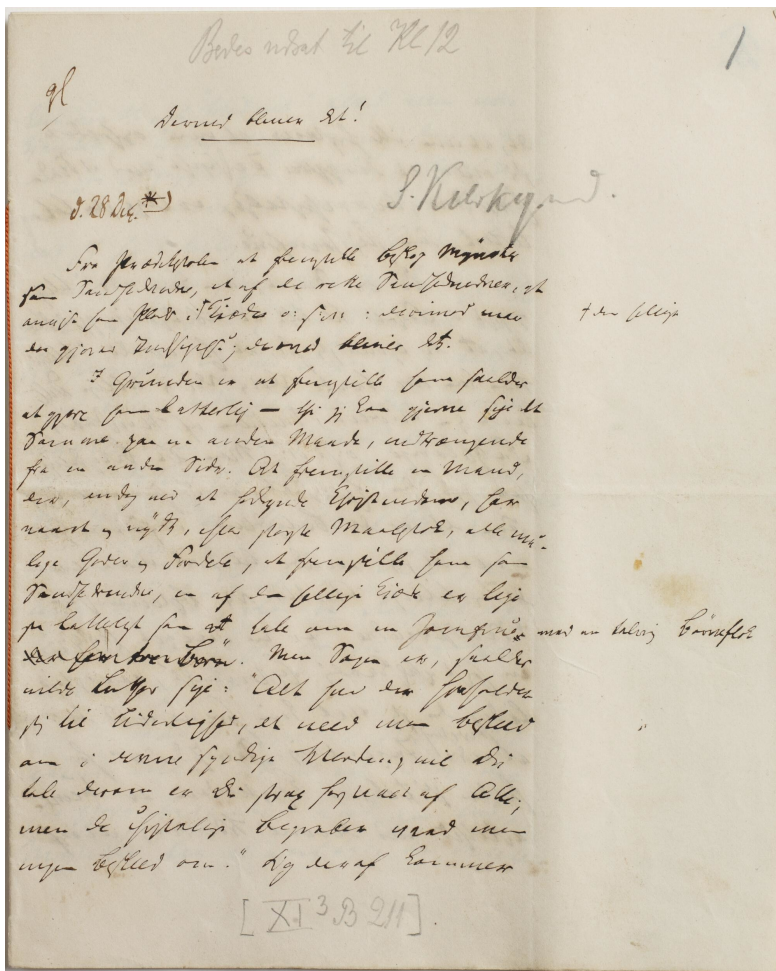 Bedes udsat til Kl 12
1
Derved bliver det!
S. Kierkegaard.
d. 28 Dec. *)
Fra Prædikestolen at fremstille Biskop Mynster
som Sandhedsvidne, et af de rette Sandhedsvidner, at
anvise ham Plads i Kjæden o: s: v: : derimod maa
der gjøres Indsigelse; derved bliver det.
† den hellige
Grunden er at fremstille ham saaledes er
at gjøre ham latterlig — thi jeg kan gjerne sige det
Samme paa en anden Maade, indtrængende
fra en anden Side. At fremstille en Mand,
der, endog ved at forkynde Christendom, har
naaet og nydt, efter største Maalestok, alle mu-
lige Goder og Fordele, at fremstille ham som
Sandhedsvidne, en af den hellige Kjæde er lige
saa latterligt som at tale om en Jomfru
med en talrig Børneflok
. Men Sagen er, saaledes
vilde Luther sige: "Alt hvad der forholder
sig til Liderlighed, det veed man Besked
om i denne syndige Verden, vil Du
tale derom er Du strax forstaaet af Alle;
men de christelige Begreber veed man
ingen Besked om." Og deraf kommer
[XI 3 B 211].